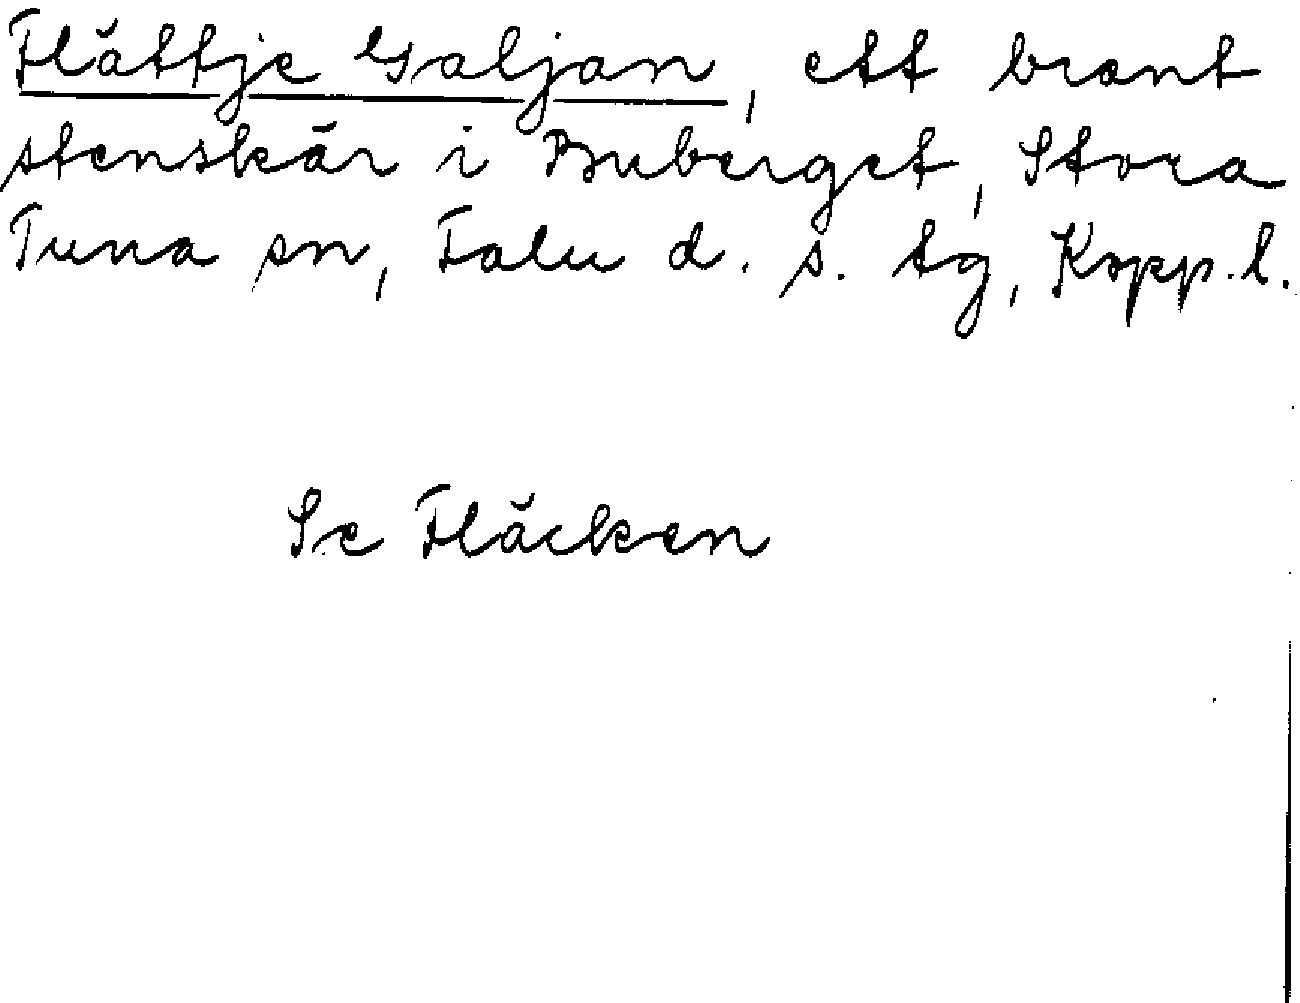 Flättje Galjan, ett brant
stenskär i Buberget, Stora
Tuna sn, Falu d. s. tg, Kopp. l.
Se Fläcken